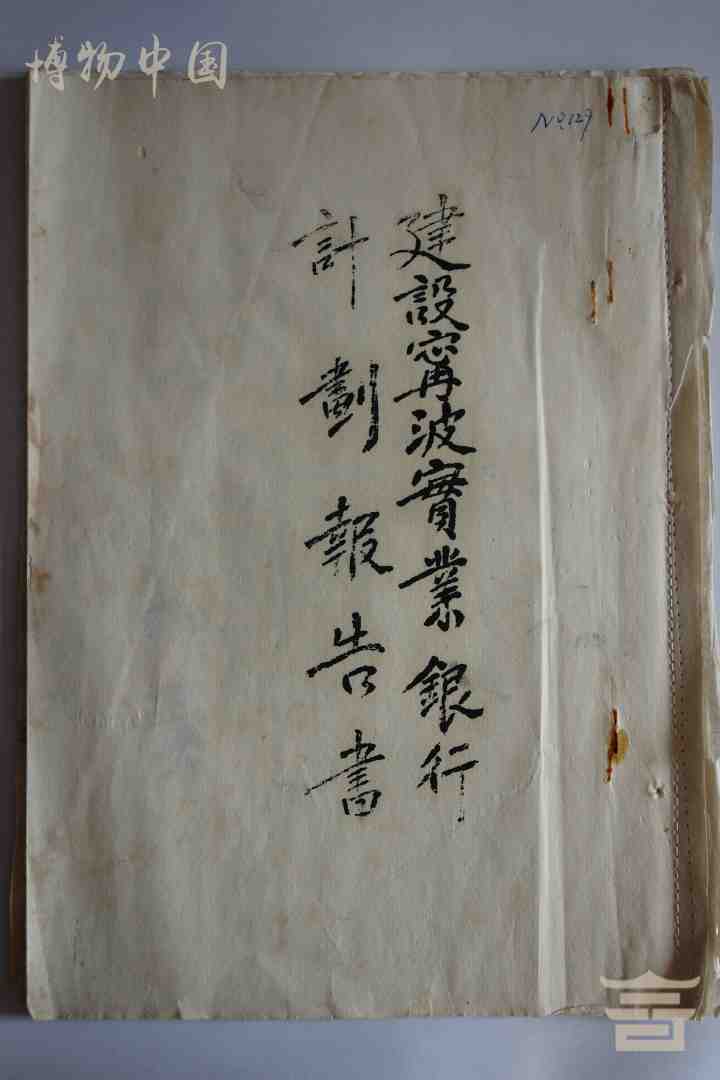 博物中国
No.129
建設甯波實業銀行
計劃報告書